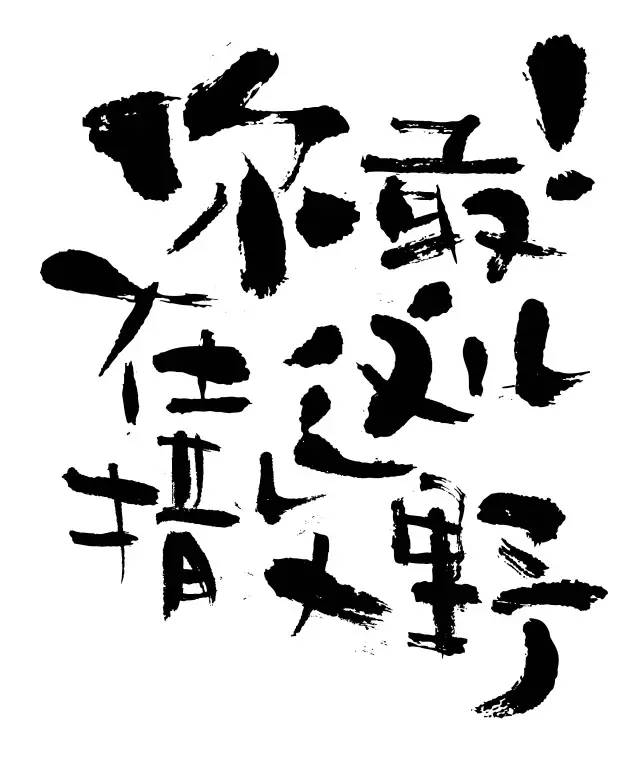 你敢!
在这儿
撒野